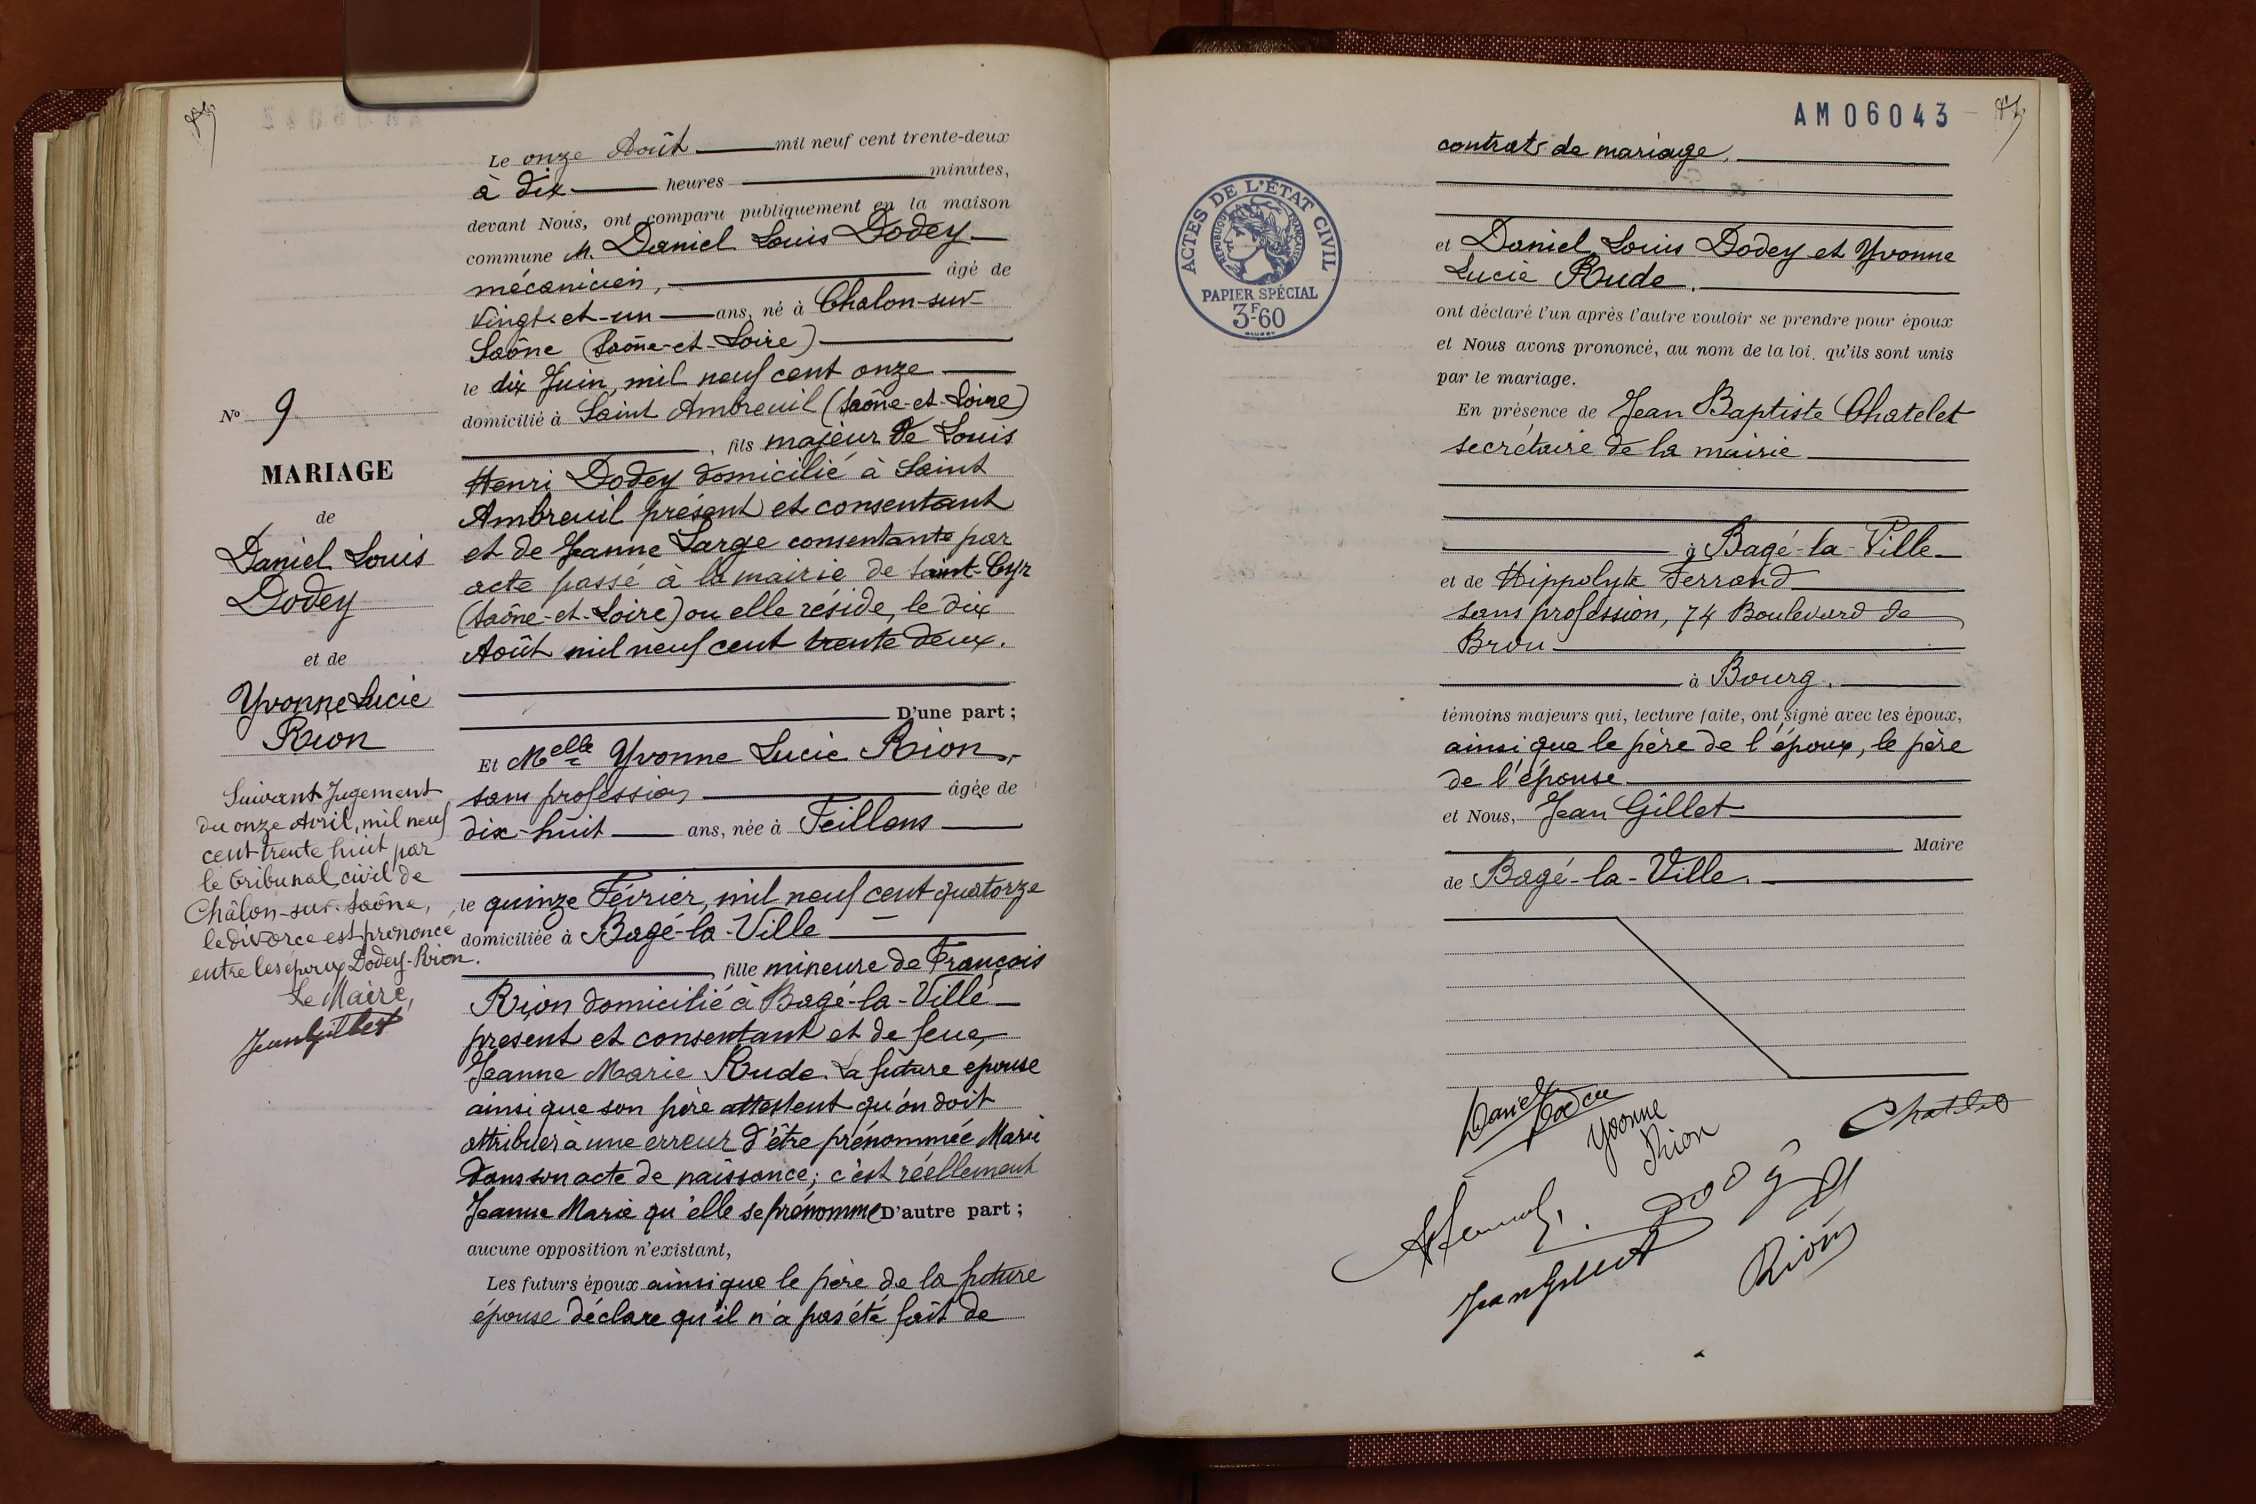 Le onze Août mil neuf cent trente-deux
à dix heures minutes,
devant Nous, ont comparu publiquement en la maison
commune M. Daniel Louis Dodey
mécanicien, âgé de
vingt-et-un ans, né à Chalon-sur-
Saône (Saône-et-Loire)
le dix Juin, mil neuf cent onze
domicilié à Saint Ambreuil (Saône-et-Loire)
, fils majeur de Louis
Henri Dodey domicilié à Saint
Ambreuil présent et consentant
et de Jeanne Large consentante par
acte passé à la mairie de Saint-Cyr
(Saône-et-Loire) ou elle réside, le dix
Août mil neuf cent trente deux.
D'une part ;
Et Melle Yvonne Lucie Rion,
sans profession âgée de
dix-huit ans, née à Feillens
le quinze Février, mil neuf cent quatorze
domiciliée à Bagé-la-Ville
, fille mineure de François
Rion domicilié à Bagé-la-Ville
present et consentant et de feue
Jeanne Marie Rude. La future epouse
ainsi que son père attestent qu'on doit
attribuer à une erreur d'être prénommée Marie
dans son acte de naissance; c'est réellement
Jeanne Marie qu'elle se prénomme D'autre part ;
aucune opposition n'existant,
Les futurs époux ainsi que le père de la future
épouse déclare qu'il n'a pas été fait de
No 9
MARIAGE
de
Daniel Louis
Dodey
et de
Yvonne Lucie
Rion
Suivant Jugement
du onze Avril, mil neuf
cent trente huit par
le tribunal civil de
Châlon-sur-Saône,
le divorce est prononcé
entre les époux Dodey-Rion.
Le Maire,
Jean Gillet
AM06043
contrat de mariage.
ACTES DE L'ÉTAT CIVIL
RÉPUBLIQUE FRANÇAISE
PAPIER SPÉCIAL
3F-60
et Daniel Louis Dodey et Yvonne
Lucie Rude.
ont déclaré l'un après l'autre vouloir se prendre pour époux
et Nous avons prononcé, au nom de la loi, qu'ils sont unis
par le mariage.
En présence de Jean Baptiste Chatelet
secrétaire de la mairie
à Bagé-la-Ville
et de Hippolyte Ferrand
sans profession, 74 Boulevard de
Brou
à Bourg.
témoins majeurs qui, lecture faite, ont signé avec les époux,
ainsi que le père de l'époux, le père
de l'épouse
et Nous, Jean Gillet
Maire
de Bagé-la-Ville.
Daniel
Dodey
Yvonne
Rion
Chatelet
Dodey
Jean Gillet
Rion